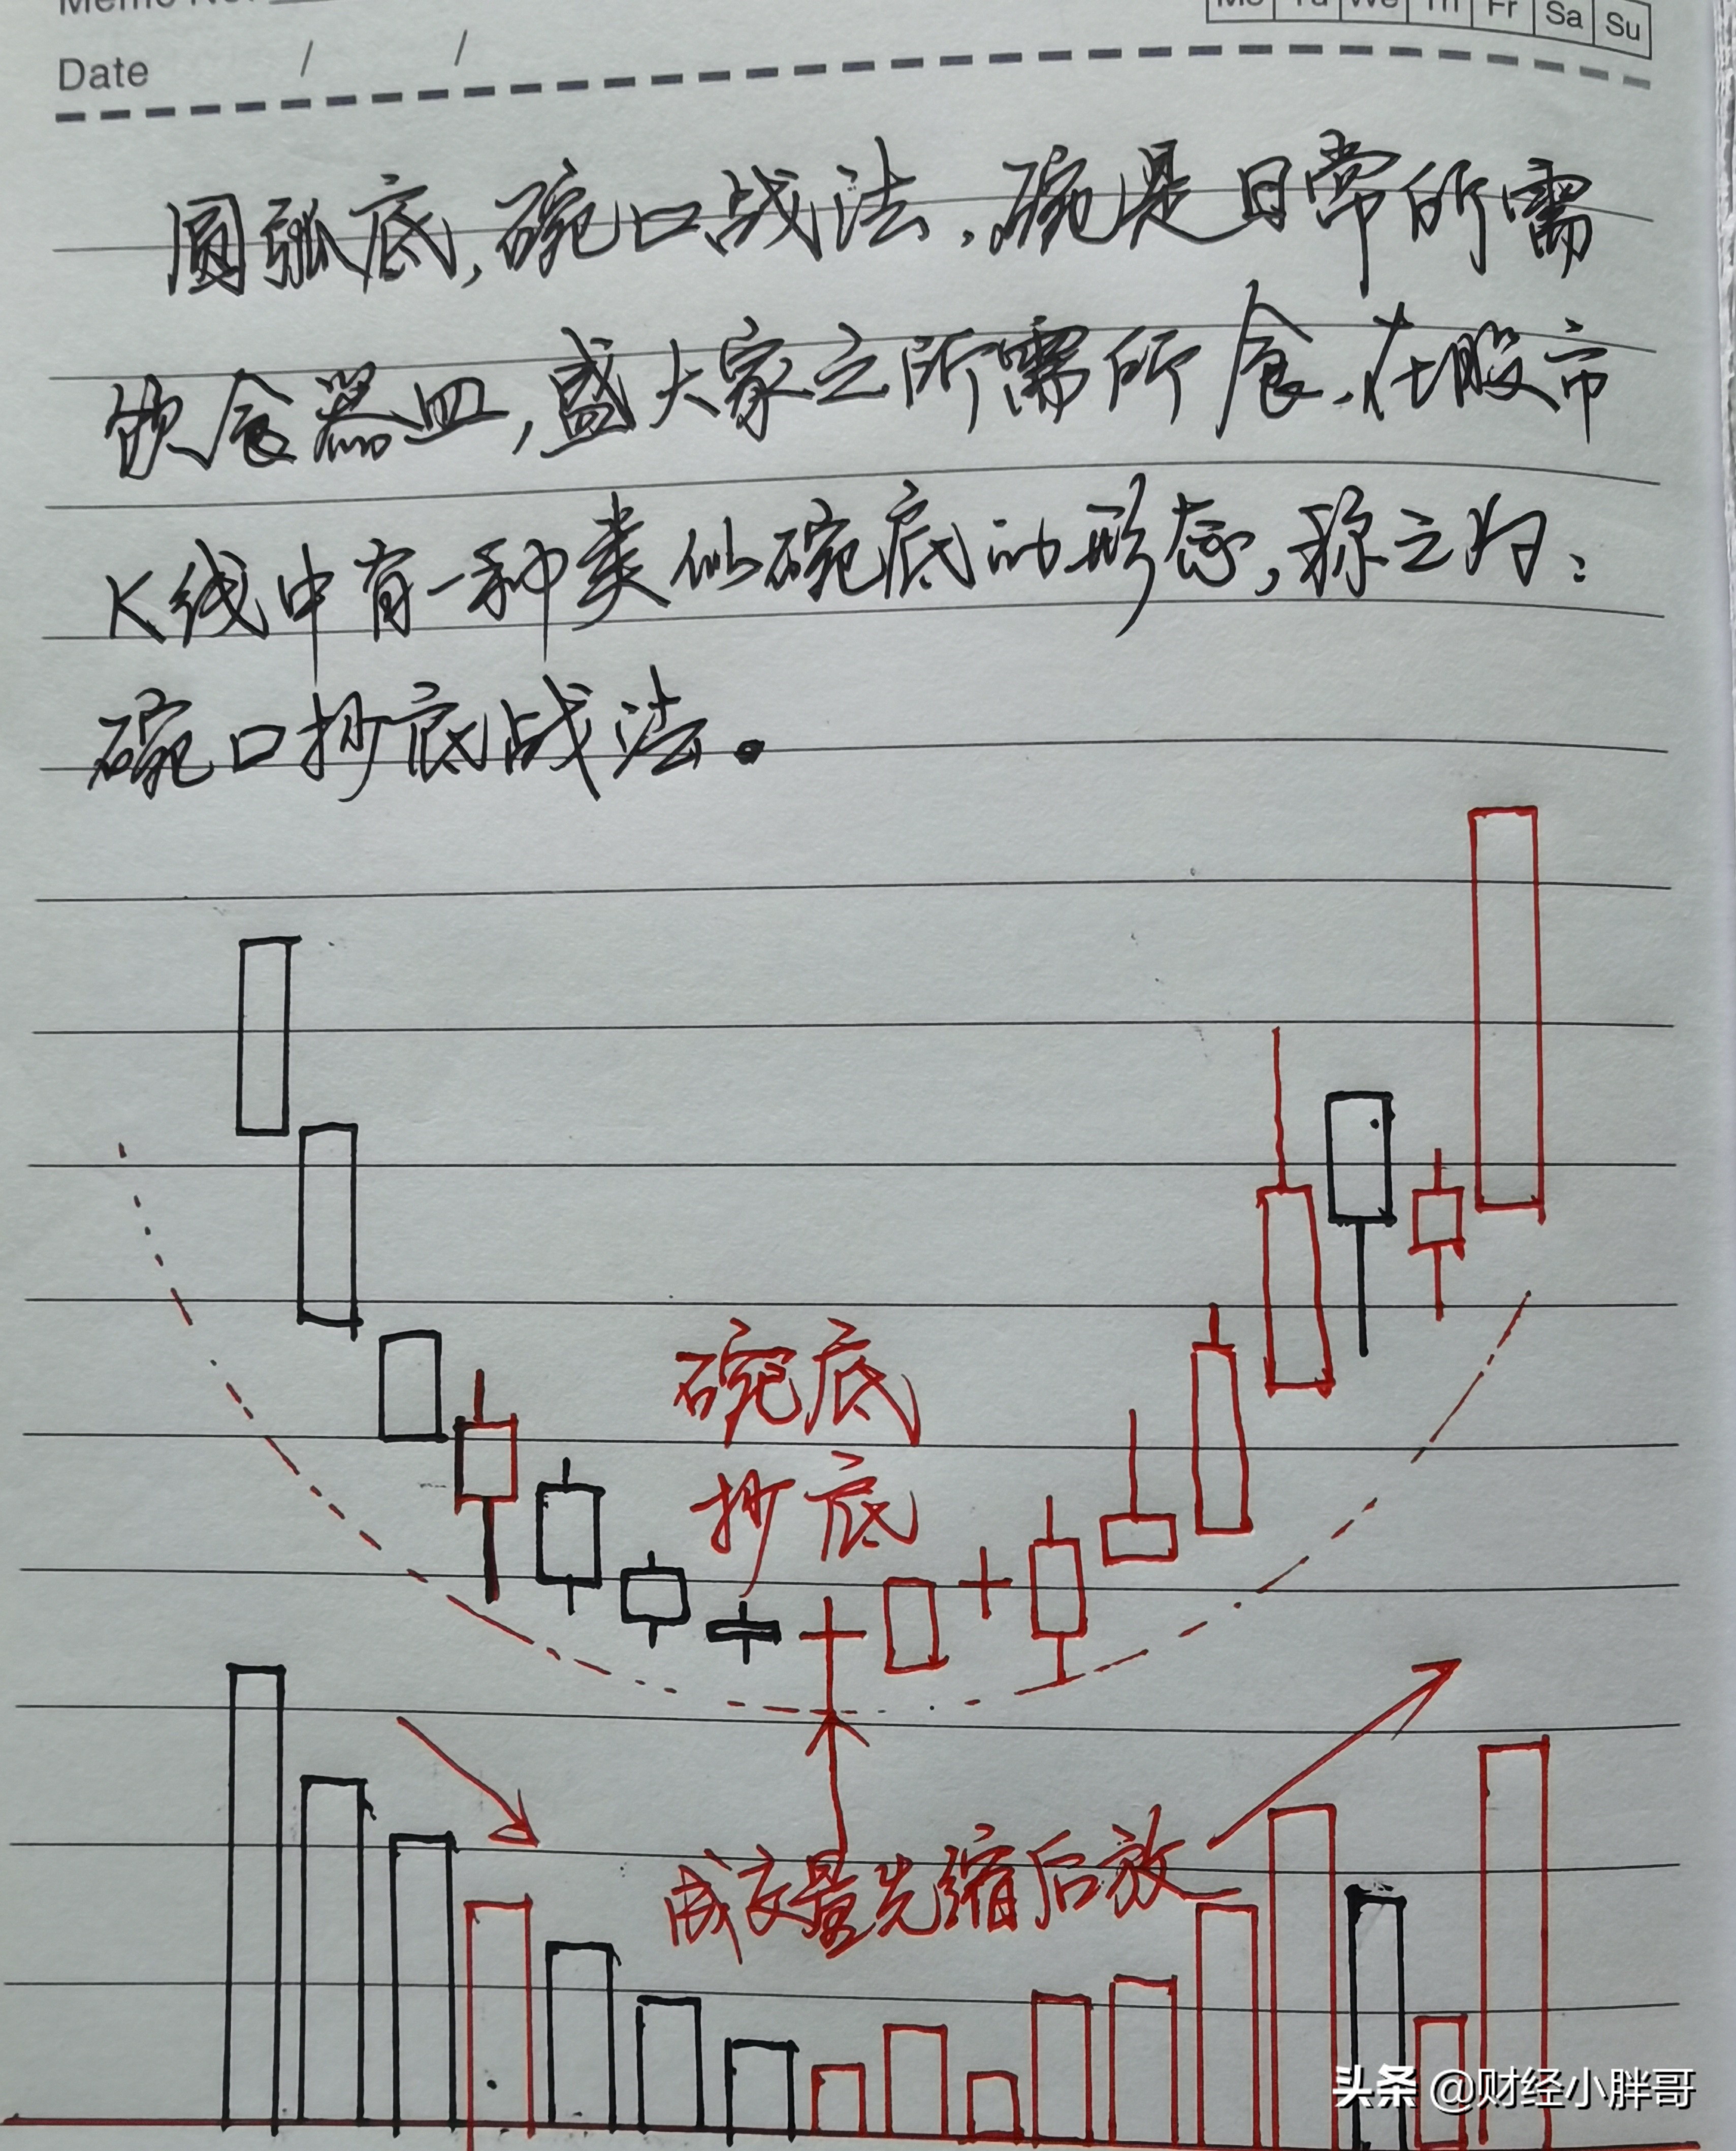 Memo No.
Mo Tu We Th Fr Sa Su
Date / /
圆弧底,碗口战法,碗是日常所需
饮食器皿,盛大家之所需所食,在股市
K线中有一种类似碗底的形态,称之为:
碗口抄底战法。
碗底
抄底
成交量先缩后放
头条 @财经小胖哥